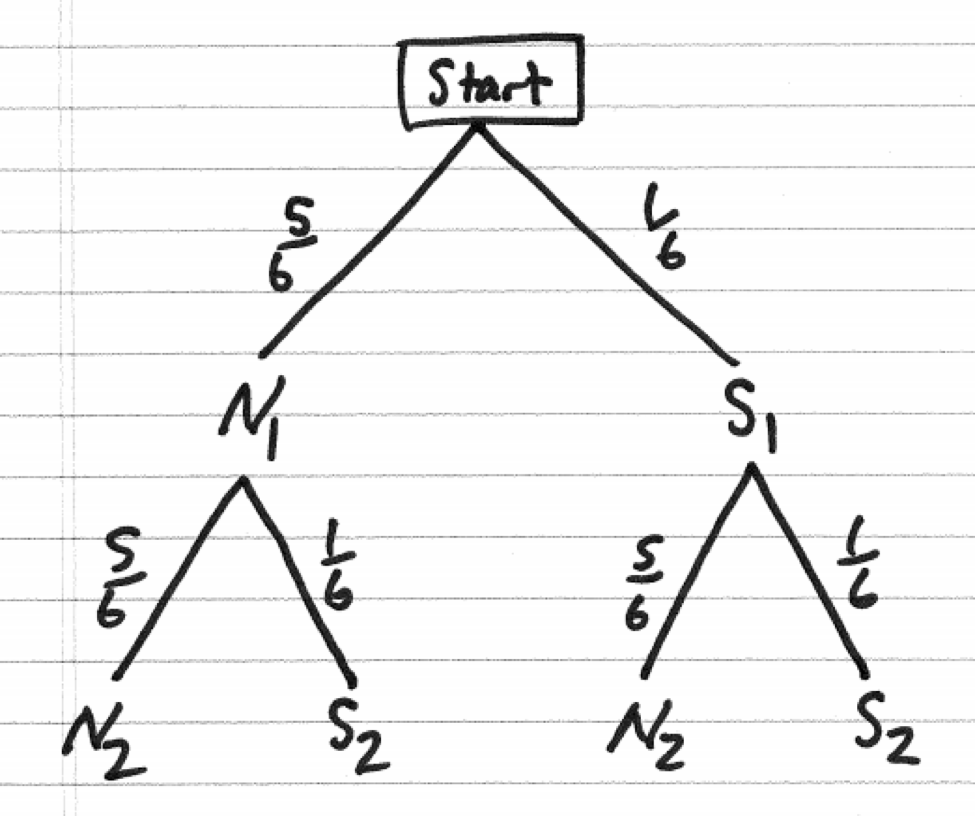 Start
5/6 1/6
N₁ S₁
5/6 1/6 5/6 1/6
N₂ S₂ N₂ S₂